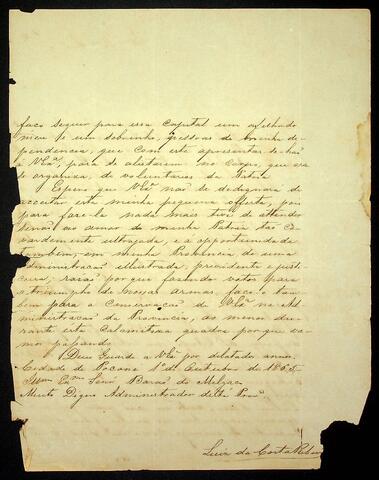 faço seguir para essa Capital um afilhado
meu e um sobrinho, pessoas de minha de-
pendencia, que com este apresentar-se-hão
a VExª, para se alistarem no Corpo, que ora
se organiza, de voluntarios da Patria.
Espero que VExª não se dedignará de
acceitar esta minha pequena offerta, pois
para fase-la nada mais tive de attender
senão ao amor de minha Patria tão co-
vardemente ultrajada, e a opportunidade
tambem, em minha Provincia de uma
administração illustrada, providente e justi-
ceira, rasão porque fazendo votos para
o triumpho das nossas armas, faço-o tam-
bem para a conservação de VExª na Ad-
ministração da Provincia, ao menos du-
rante esta calamitosa quadra porque va-
mos passando.
Deus Guarde a VExª por dilatados annos.
Cidade de Pocone 1º de Outubro de 1865.
Illmo Exmo Senr Barão de Melgaço
Muito Digno Administrador desta Provª
Luiz da Costa Ribeiro